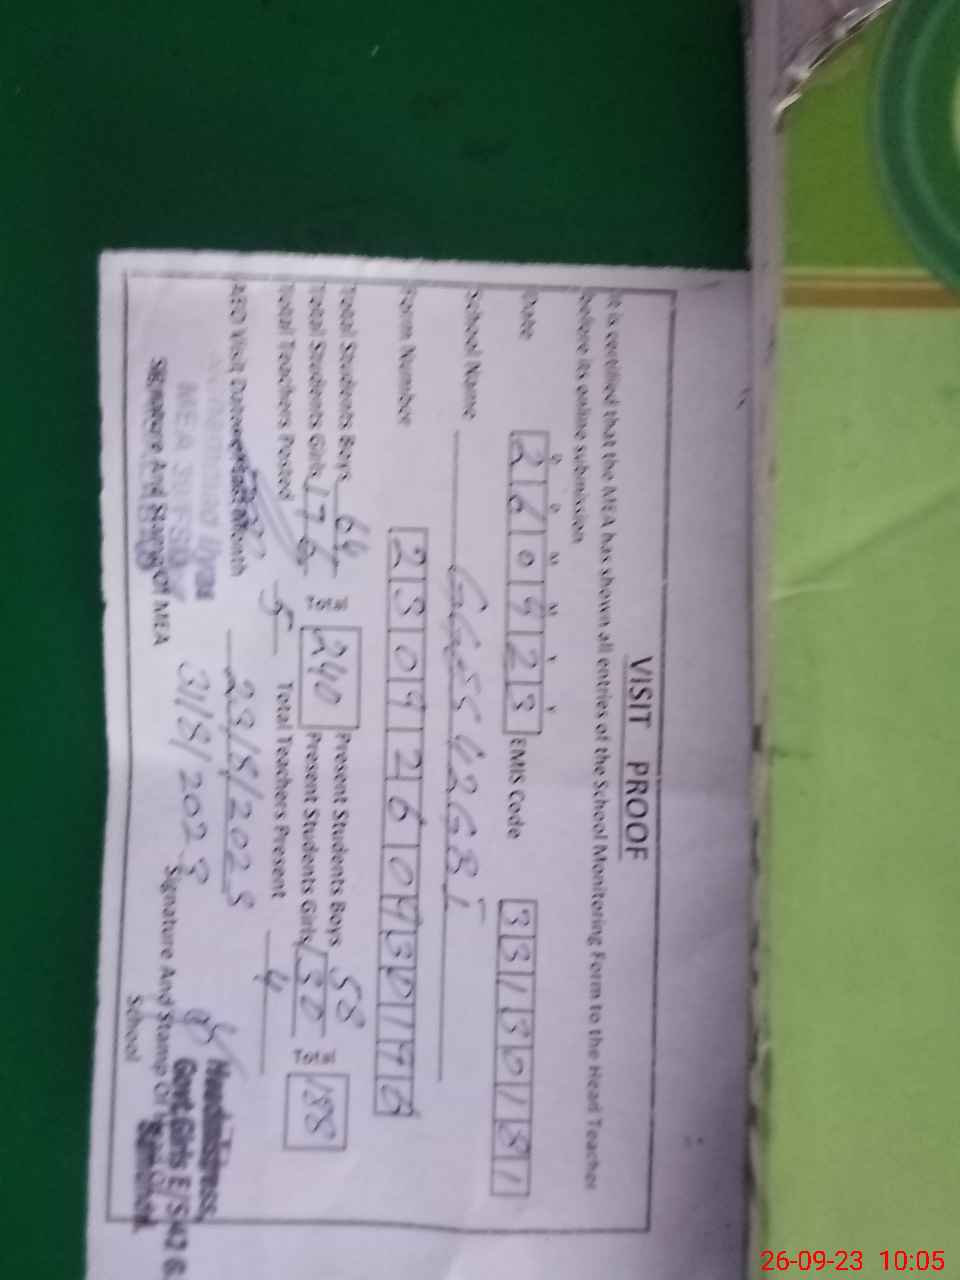 VISIT PROOF
It is certified that the MEA has shown all entries of the School Monitoring Form to the Head Teacher
before its online submission
Date 260923 EMIS Code 33130181
School Name GGES 42GBI
Form Number
Total Students Boys 64 Total 240 Present Students Boys 58 Total 188
Total Students Girls 176 Present Students Girls 130
Total Teachers Posted 5 Total Teachers Present 4
AEO Visit Date 23/8/2023
31/8/2023
Signature And Stamp Of MEA
Signature And Stamp Of Head Of School
Headmistress
Govt Girls E/S 42 G.
26-09-23 10:05